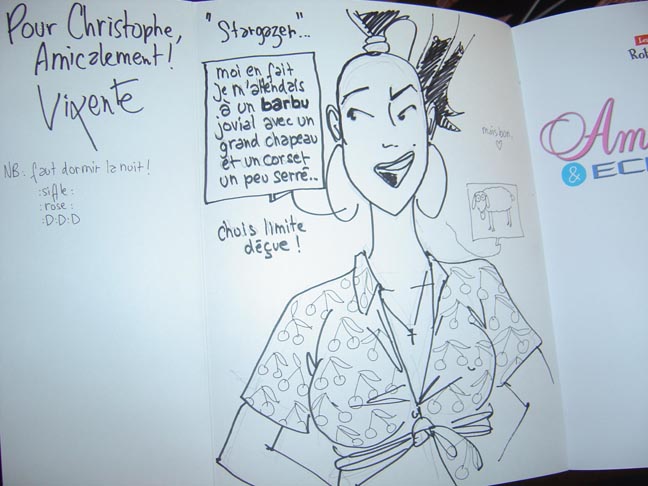 Pour Christophe,
Amicalement!
Vixente
NB: faut dormir la nuit!
:siffle:
:rose:
:D:D:D
"Stargazer"...
moi en fait
je m'attendais
à un barbu
jovial avec un
grand chapeau
et un corset
un peu serré...
chuis limite
déçue!
mais bon.
Am
& EC